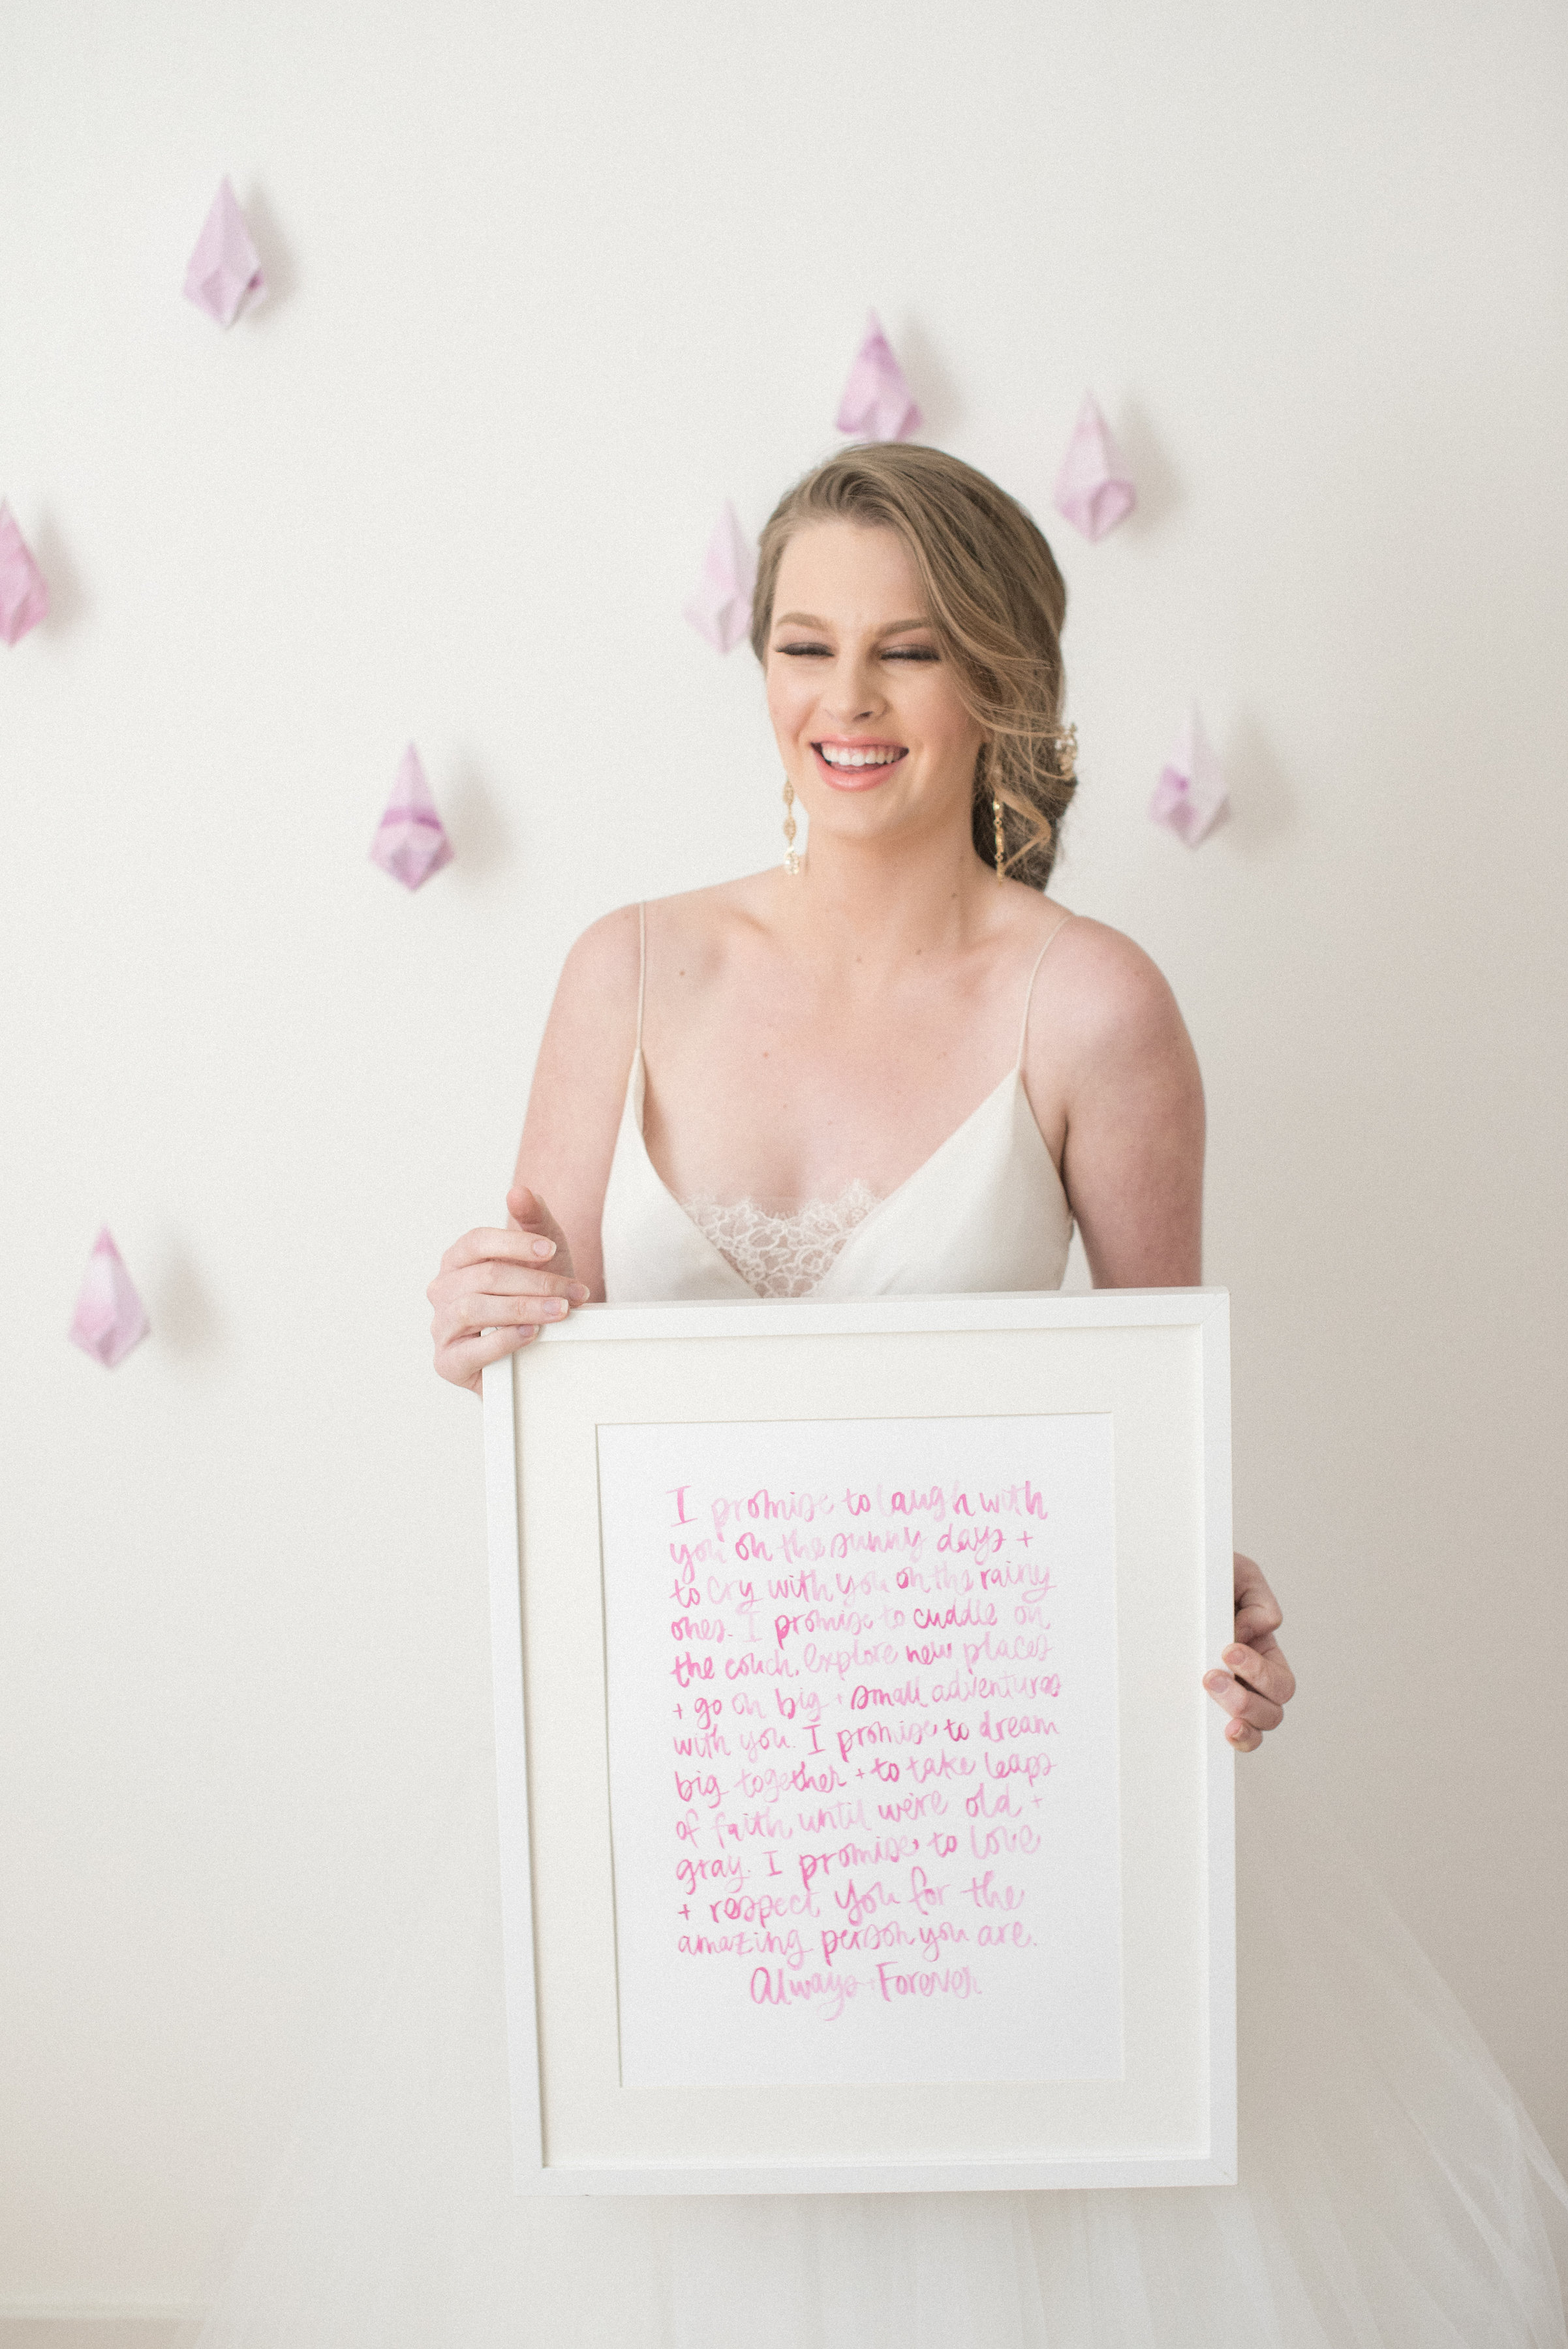 I promise to laugh with
you on the sunny days +
to cry with you on the rainy
ones. I promise to cuddle on
the couch, explore new places
+ go on big + small adventures
with you. I promise to dream
big together + to take leaps
of faith until we're old +
gray. I promise to love
+ respect you for the
amazing person you are.
Always + Forever